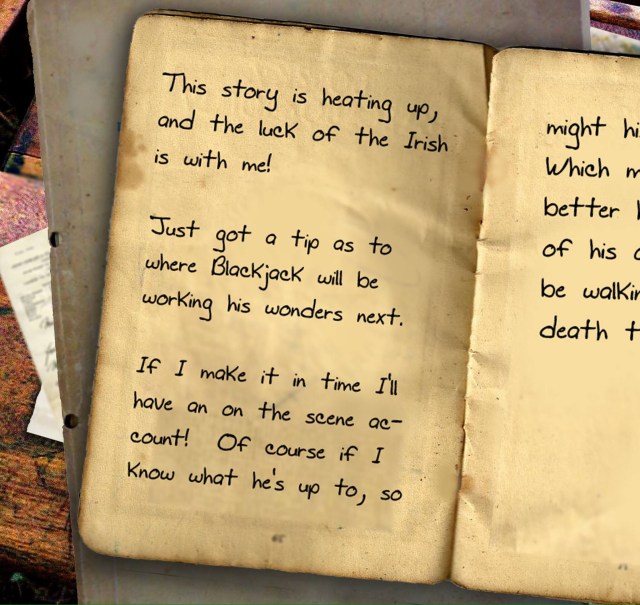 This story is heating up,
and the luck of the Irish
is with me!
Just got a tip as to
where Blackjack will be
working his wonders next.
If I make it in time I'll
have an on the scene ac-
count! Of course if I
know what he's up to, so
might
Which
better
of his
be
death